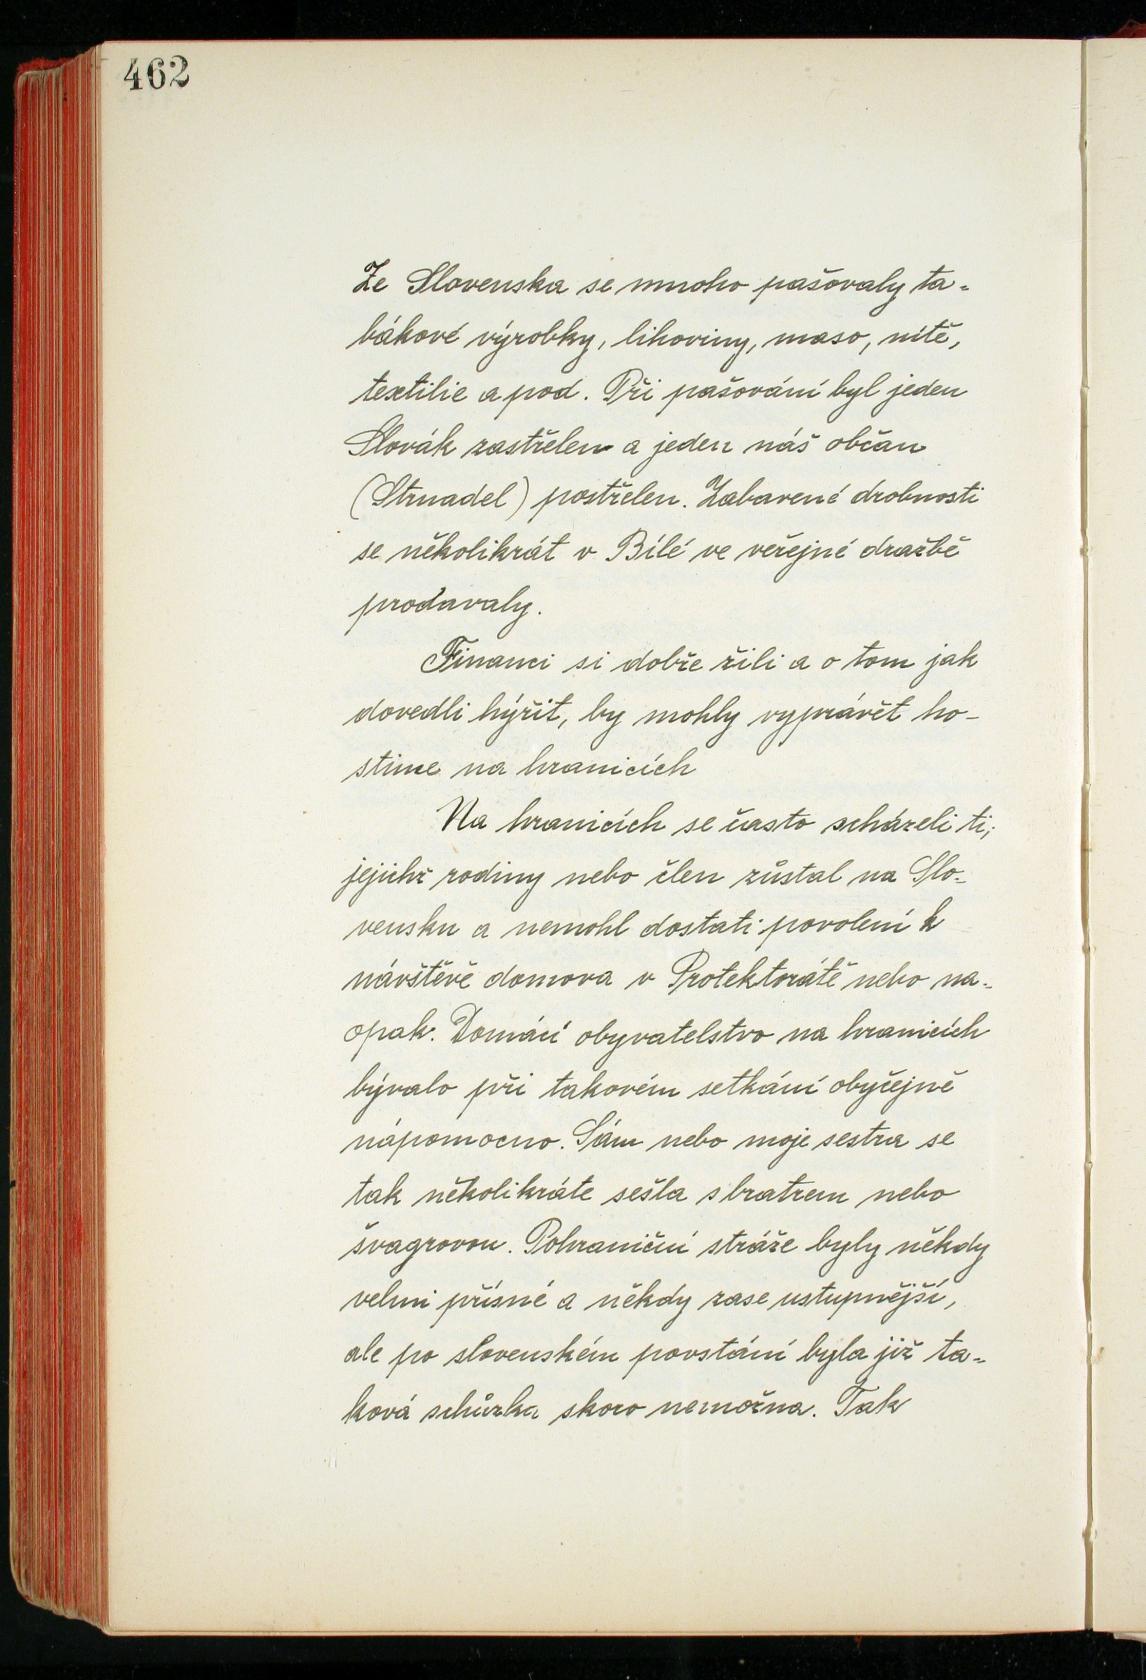 462
Ze Slovenska se mnoho pašovaly ta-
bákové výrobky, lihoviny, maso, nitě,
textilie a pod. Při pašování byl jeden
Slovák zastřelen a jeden náš občan
(Strnadel) postřelen. Zabavené drobnosti
se několikrát v Bílé ve veřejné dražbě
prodavaly.
Financi si dobře žili a o tom jak
dovedli hýřit, by mohly vyprávět ho-
stince na hranicích
Na hranicích se často scházeli ti,
jejichž rodiny nebo člen zůstal na Slo-
vensku a nemohl dostati povolení k
návštěvě domova v Protektorátě nebo na-
opak. Domácí obyvatelstvo na hranicích
bývalo při takovém setkání obyčejně
nápomocno. Sám nebo moje sestra se
tak několikráte sešla s bratrem nebo
švagrovou. Pohraniční stráže byly někdy
velmi přísné a někdy zase ustupnější,
ale po slovenském povstání byla již ta-
ková schůzka skoro nemožna. Tak